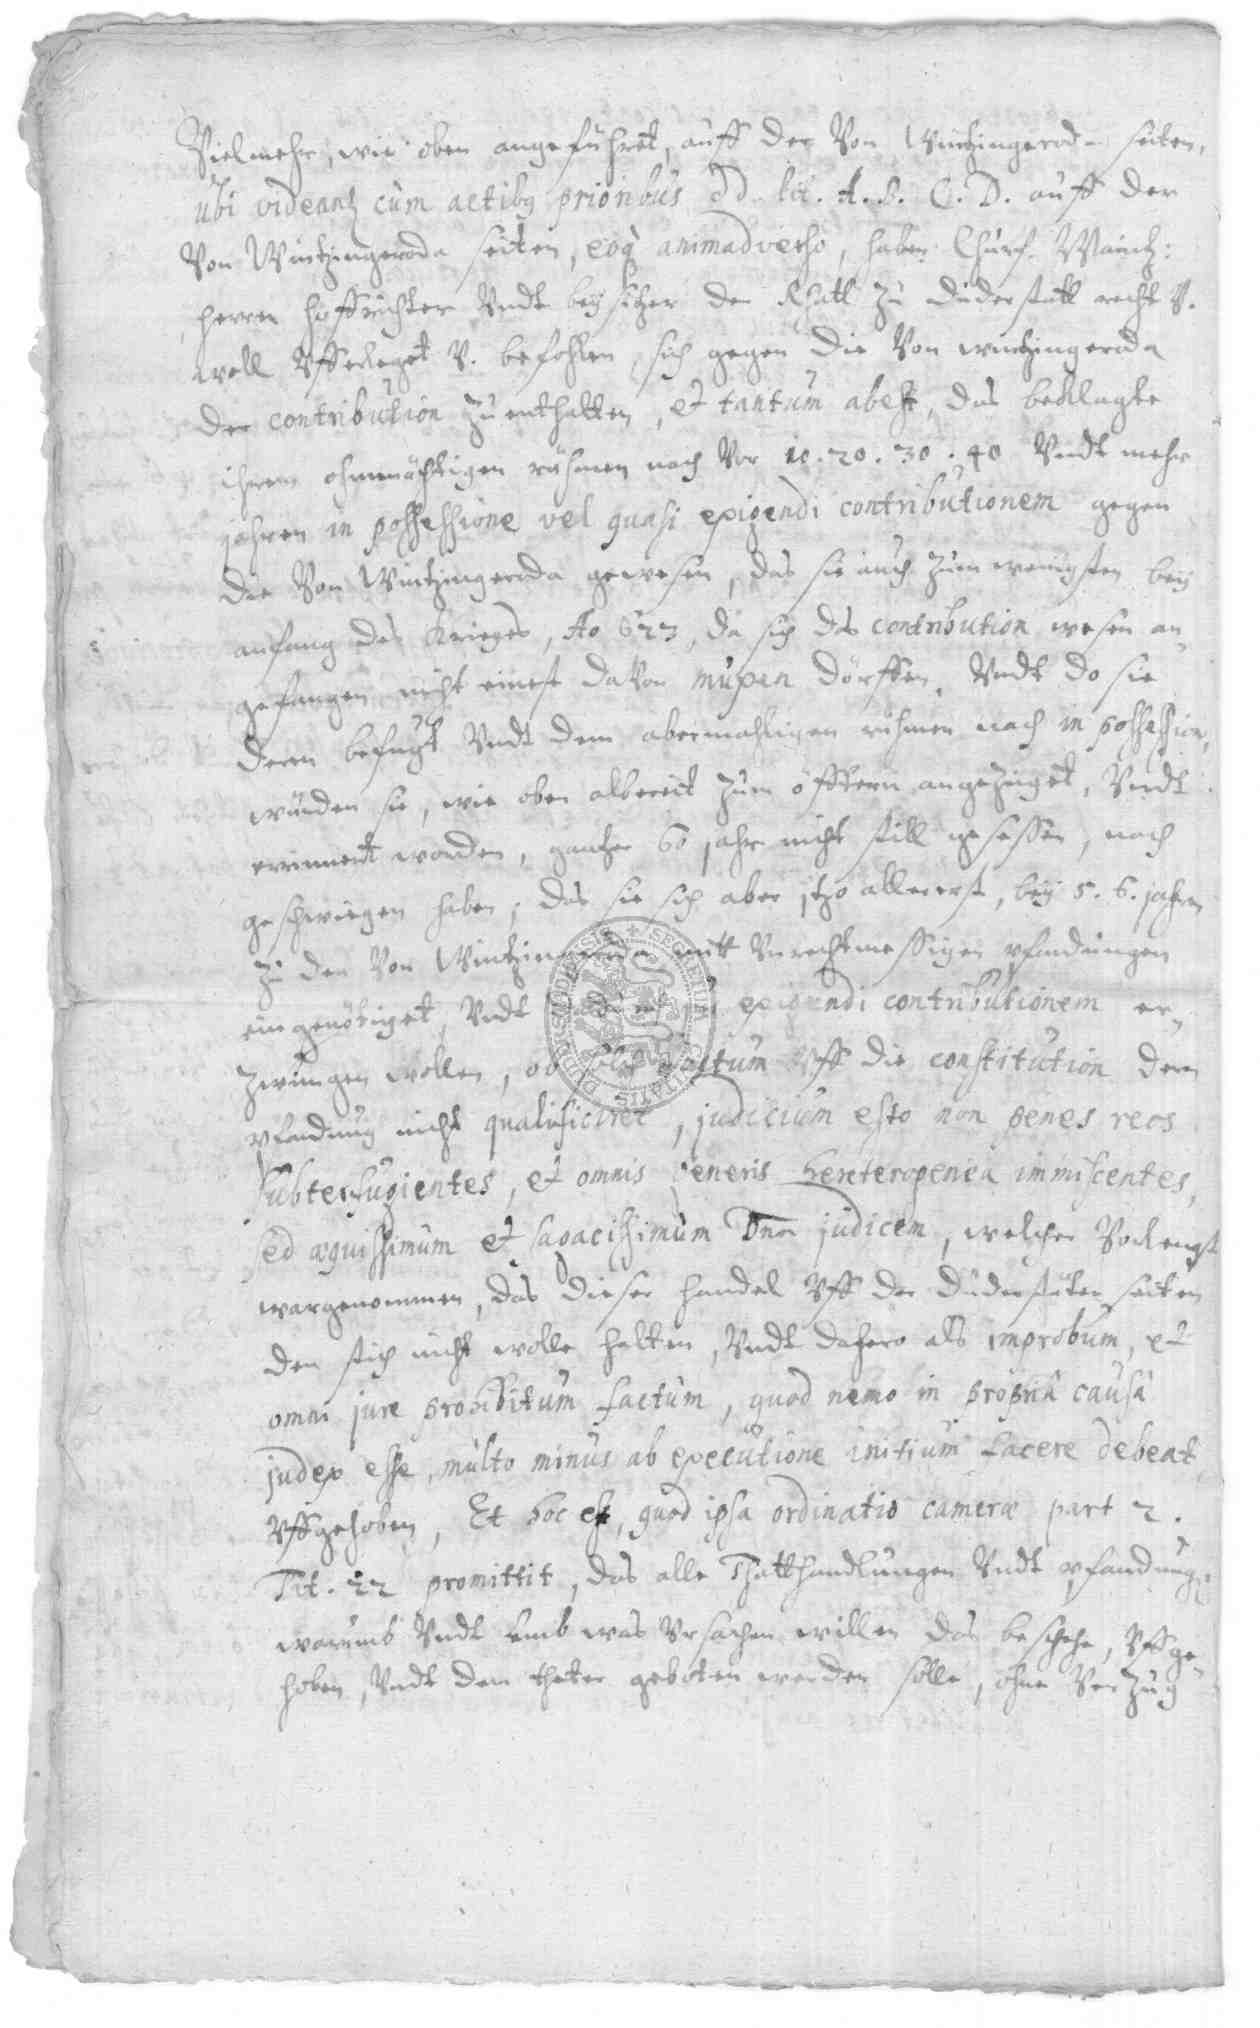 Vielmehr, wie oben angeführet, auff der Von Wintzingerod- seiten,
ubi videantz cum actibꝫ prioribus dd. lit. A. B. C. D. auff der
Von Wintzingeroda seiten, eoq animadverso, haben Churf. Maintz:
herren hoffrichter Vndt beysitzer den Rhatt zu Duderstatt recht V.
woll Vfferleget V. befohlen, sich gegen die Von wintzingeroda
der contribution zu enthalten, et tantum abest, das beklagte
ihrem ohnmächtigen rühmen nach Vor 10. 20. 30. 40 Vndt mehr
jahren in possessione vel quasi exigendi contributionem gegen
die Von Wintzingeroda gewesen, das sie auch zum wenigsten bey
anfang des Krieges, Ao 623, da sich das contribution wesen an-
gefangen nicht einest davon muxen dörffen. Vndt do sie
deren befugt Vndt dem abermahligen rühmen nach in possession,
würden sie, wie oben albereit zum öfftern angezeiget, Vndt
errinnert worden, gantzer 60 jahr nicht still gesessen, noch
geschwiegen haben; das sie sich aber jtzo allererst, bey 5. 6. jahren
zu den Von Wintzingeroda mitt Vnrechtmessigen pfandungen
eingenötiget, Vndt exigendi contributionem er-
zwingen wollen, ob solch factum Vff die constitution der
pfandung nicht qualificiret, judicium esto non penes reos
subterfugientes, et omnis generis hereterogenea immiscentes,
sed æquissimum et sagacissimum Dnn judicem, welcher Vorlengst
wargenommen, das dieser handel Vff der Duderstäter seiten
den stich nicht wolle halten, Vndt dahero als improbum, et
omni jure prohibitum factum, quod nemo in propriâ causâ
judex esse, multo minus ab executione initium facere debeat
Vffgehoben, Et hoc est, quod ipsa ordinatio cameræ part 2.
Tit. 22 promittit, das alle Thatthandlungen Vndt pfandung:
warumb Vndt Umb was Vrsachen willen das beschehe, Vffge-
hoben, Vndt dem theter geboten werden solle, ohne Verzug